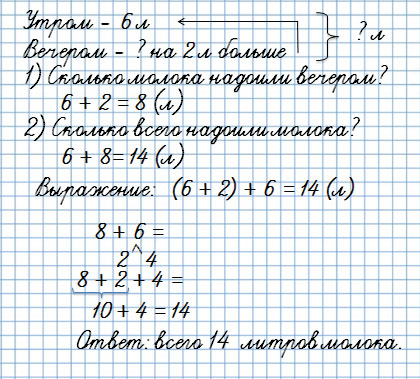 Утром - 6 л
? л
Вечером - ? на 2 л больше
1) Сколько молока надоили вечером?
6 + 2 = 8 (л)
2) Сколько всего надоили молока?
6 + 8 = 14 (л)
Выражение: (6 + 2) + 6 = 14 (л)
8 + 6 =
2 4
8 + 2 + 4 =
10 + 4 = 14
Ответ: всего 14 литров молока.